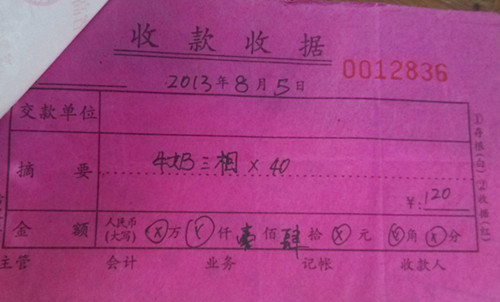 收款收据
0012836
2013年8月5日
交款单位
摘 要 牛奶三相 × 40
¥:120
金 额 人民币(大写) ⊗万 ⊗仟 壹佰 肆拾 ⊗元 ⊗角 ⊗分
主管 会计 业务 记帐 收款人
①存帐(白)②收据(红)